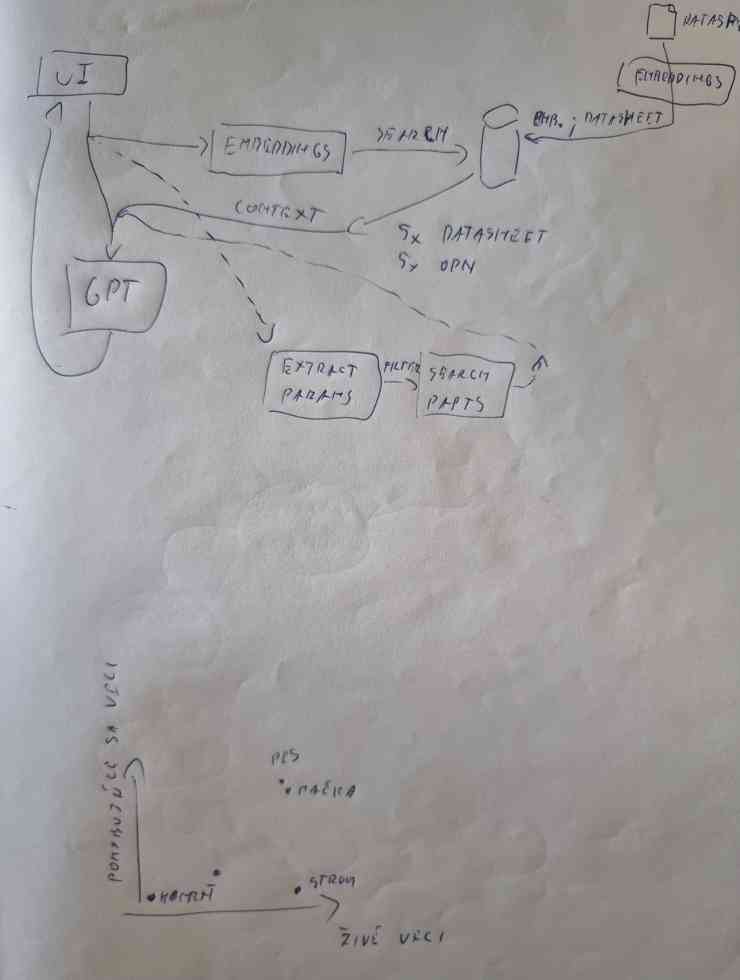 DATASH
EMBEDDINGS
UI
EMBEDDINGS
SEARCH
EMB. ; DATASHEET
CONTEXT
5x DATASHEET
5x OPN
GPT
EXTRACT
PARAMS
FILTER
SEARCH
PARTS
POHYBUJÚCE SA VECI
PES
MAČKA
KAMEŇ
STROM
ŽIVÉ VECI